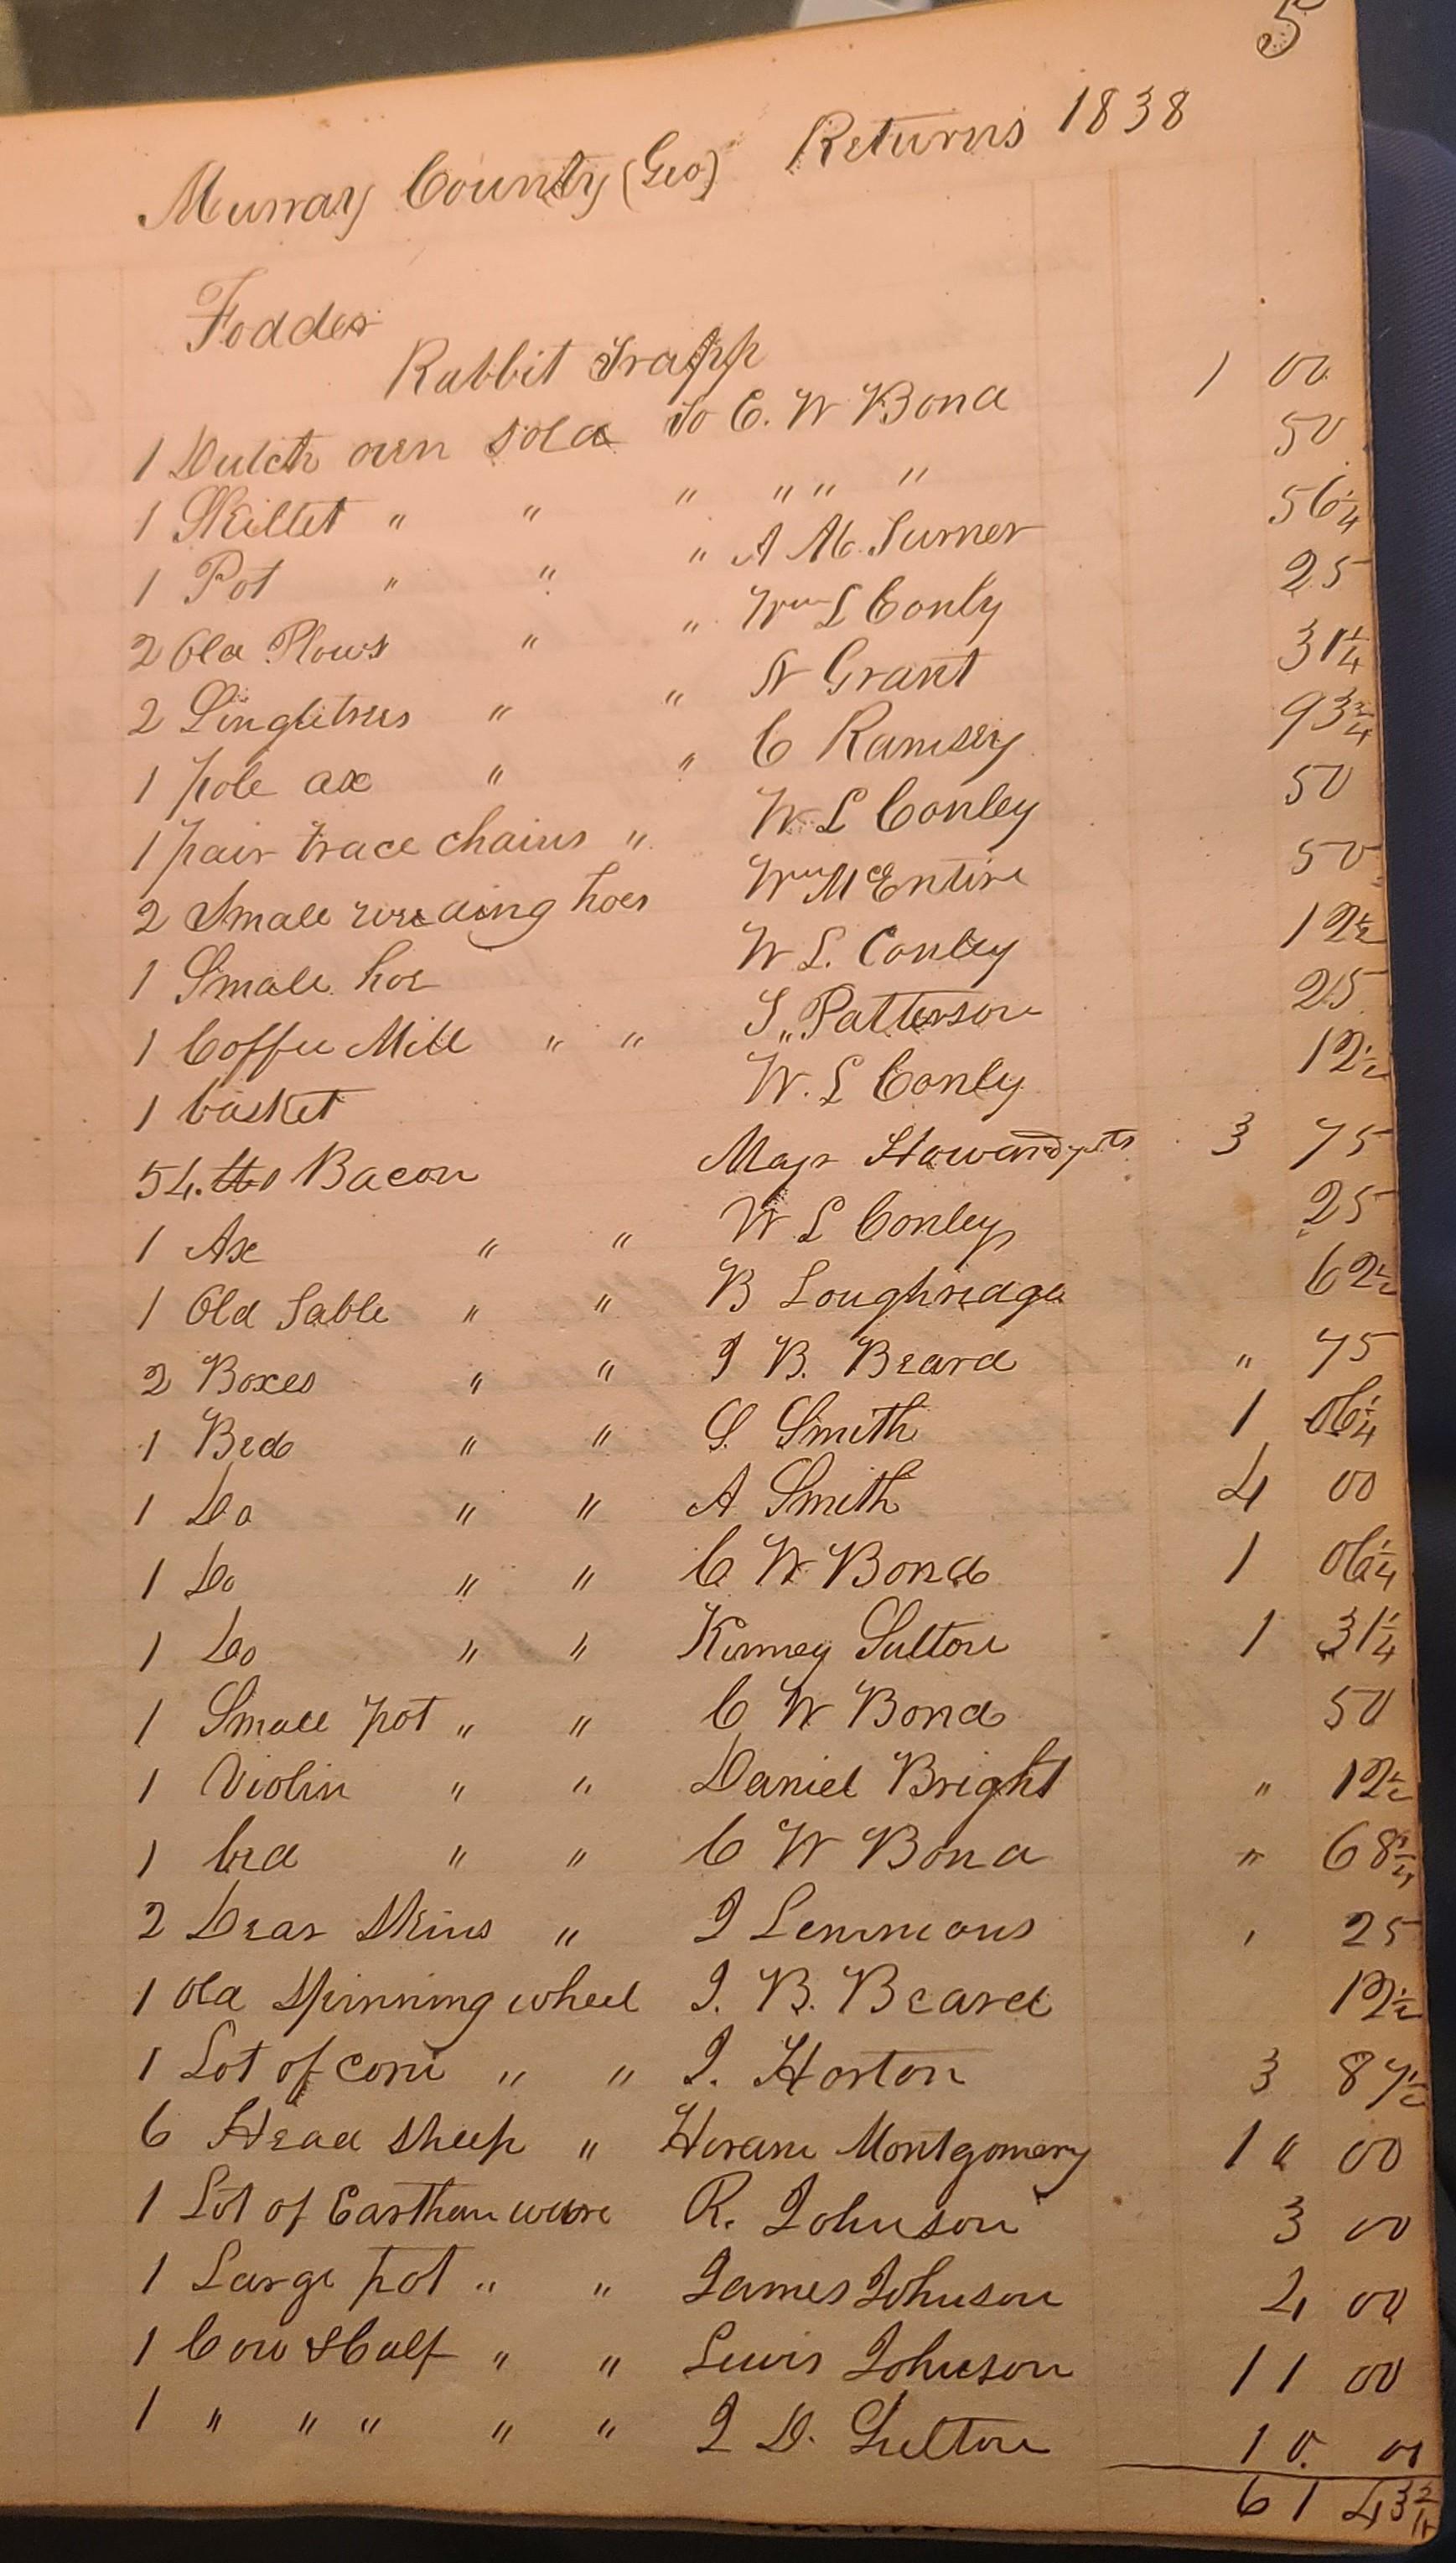 5
Murray County (Geo) Returns 1838
Fodder
Rabbit Trapp
1 Dutch oven sold To C. W Bond 1 00
1 Skillet " " " " " " 50
1 Pot " " " A Mc Turner 56 1/4
2 Old Plows " " Wm L Conly 25
2 Singletrees " " N Grant 31 1/4
1 pole ax " " C Ramsey 93 3/4
1 pair trace chains " W L Conley 50
2 Small weeding hoes Wm McEntire 50
1 Small hoe W L. Conley 12 1/2
1 Coffee Mill " " S,, Patterson 25
1 basket W. L Conly 12 1/2
54. lbs Bacon Maj Howard 3 75
1 Ax " " W L Conley 25
1 Old Table " " B Loughridge 62 1/2
2 Boxes " " J B. Beard " 75
1 Bed " " S. Smith 1 06 1/4
1 Do " " A Smith 4 00
1 Do " " C W Bond 1 06 1/4
1 Do " " Kinney Sulton 1 31 1/4
1 Small pot " " C W Bond 50
1 Violin " " Daniel Bright " 12 1/2
1 bed " " C W Bond " 68 3/4
2 Dear Skins " J Lemmons " 25
1 old spinning wheel J. B. Beard 12 1/2
1 Lot of corn " " J. Horton 3 87 1/2
6 Head sheep " Hiram Montgomery 10 00
1 Lot of Earthen ware R. Johnson 3 00
1 Large pot " " James Johnson 4 00
1 Cow & Calf " " Lewis Johnson 11 00
1 " " " " " J D. Sulton 10. 00
61 43 3/4